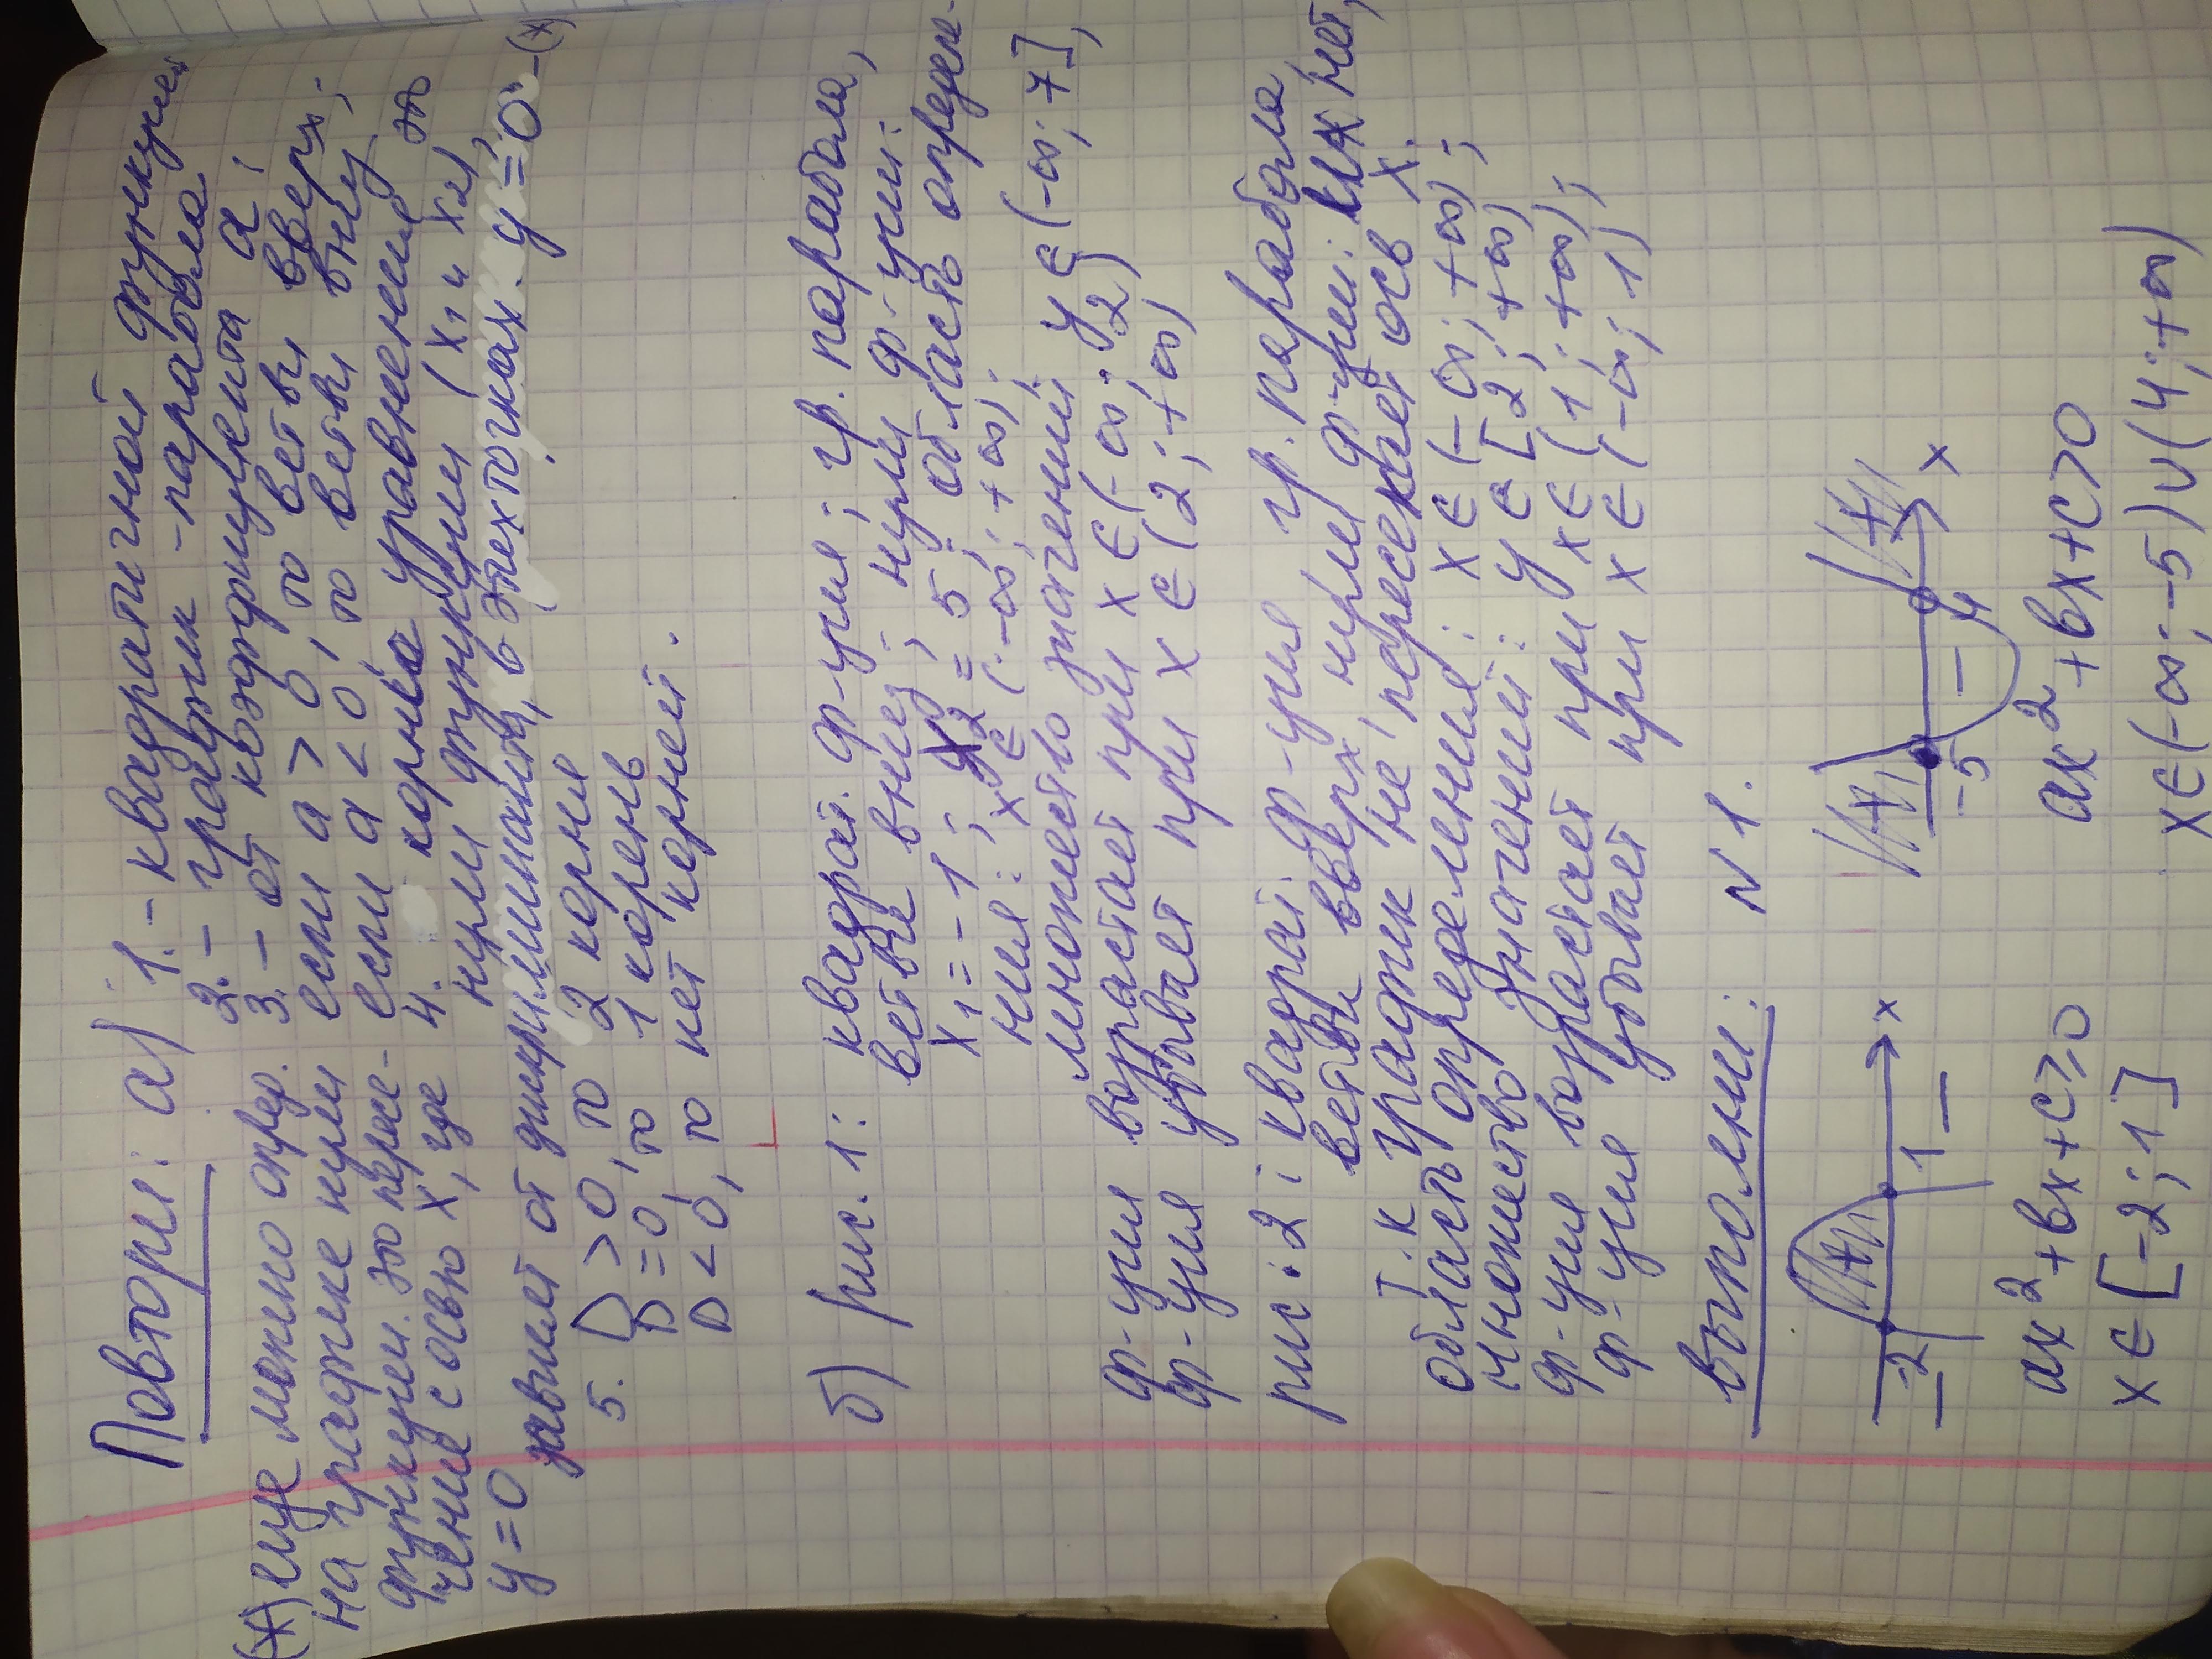 Повтори: а) 1.- квадратичной функции
2.- график - парабола
3.- от коэффициента а;
если а > 0, то ветви вверх;
если а < 0, то ветви вниз
4. корни уравнения это
нули функции (x₁ и x₂),
в этих точках. y = 0 - (*)
(*) еще можно опред.
на графике нули
функции. это пересе-
чение с осью x, где
y = 0
зависит от дискриминанта,
5. D > 0, то 2 корня
D = 0, то 1 корень
D < 0, то нет корней.
б) рис. 1: квадрат. ф-ция; гр. парабола,
ветви вниз; нули ф-ции:
x₁ = -1; x₂ = 5; область определе-
ния: x ∈ (-∞; +∞);
множество значений: y ∈ (-∞; 7];
ф-ция возрастает при x ∈ (-∞; 2)
ф-ция убывает при x ∈ (2; +∞)
рис. 2: квадрат. ф-ция гр. парабола
ветви вверх, нули ф-ции: их нет,
т.к график не пересекает ось x.
область определения: x ∈ (-∞; +∞);
множество значений: y ∈ [2; +∞);
ф-ция возрастает при x ∈ (1; +∞);
ф-ция убывает при x ∈ (-∞; 1)
выполни: N 1.
-2 + 1 x
- -
+ -5 - 4 + x
ax² + bx + c ≥ 0
x ∈ [-2; 1]
ax² + bx + c > 0
x ∈ (-∞; -5) ∪ (4; +∞)